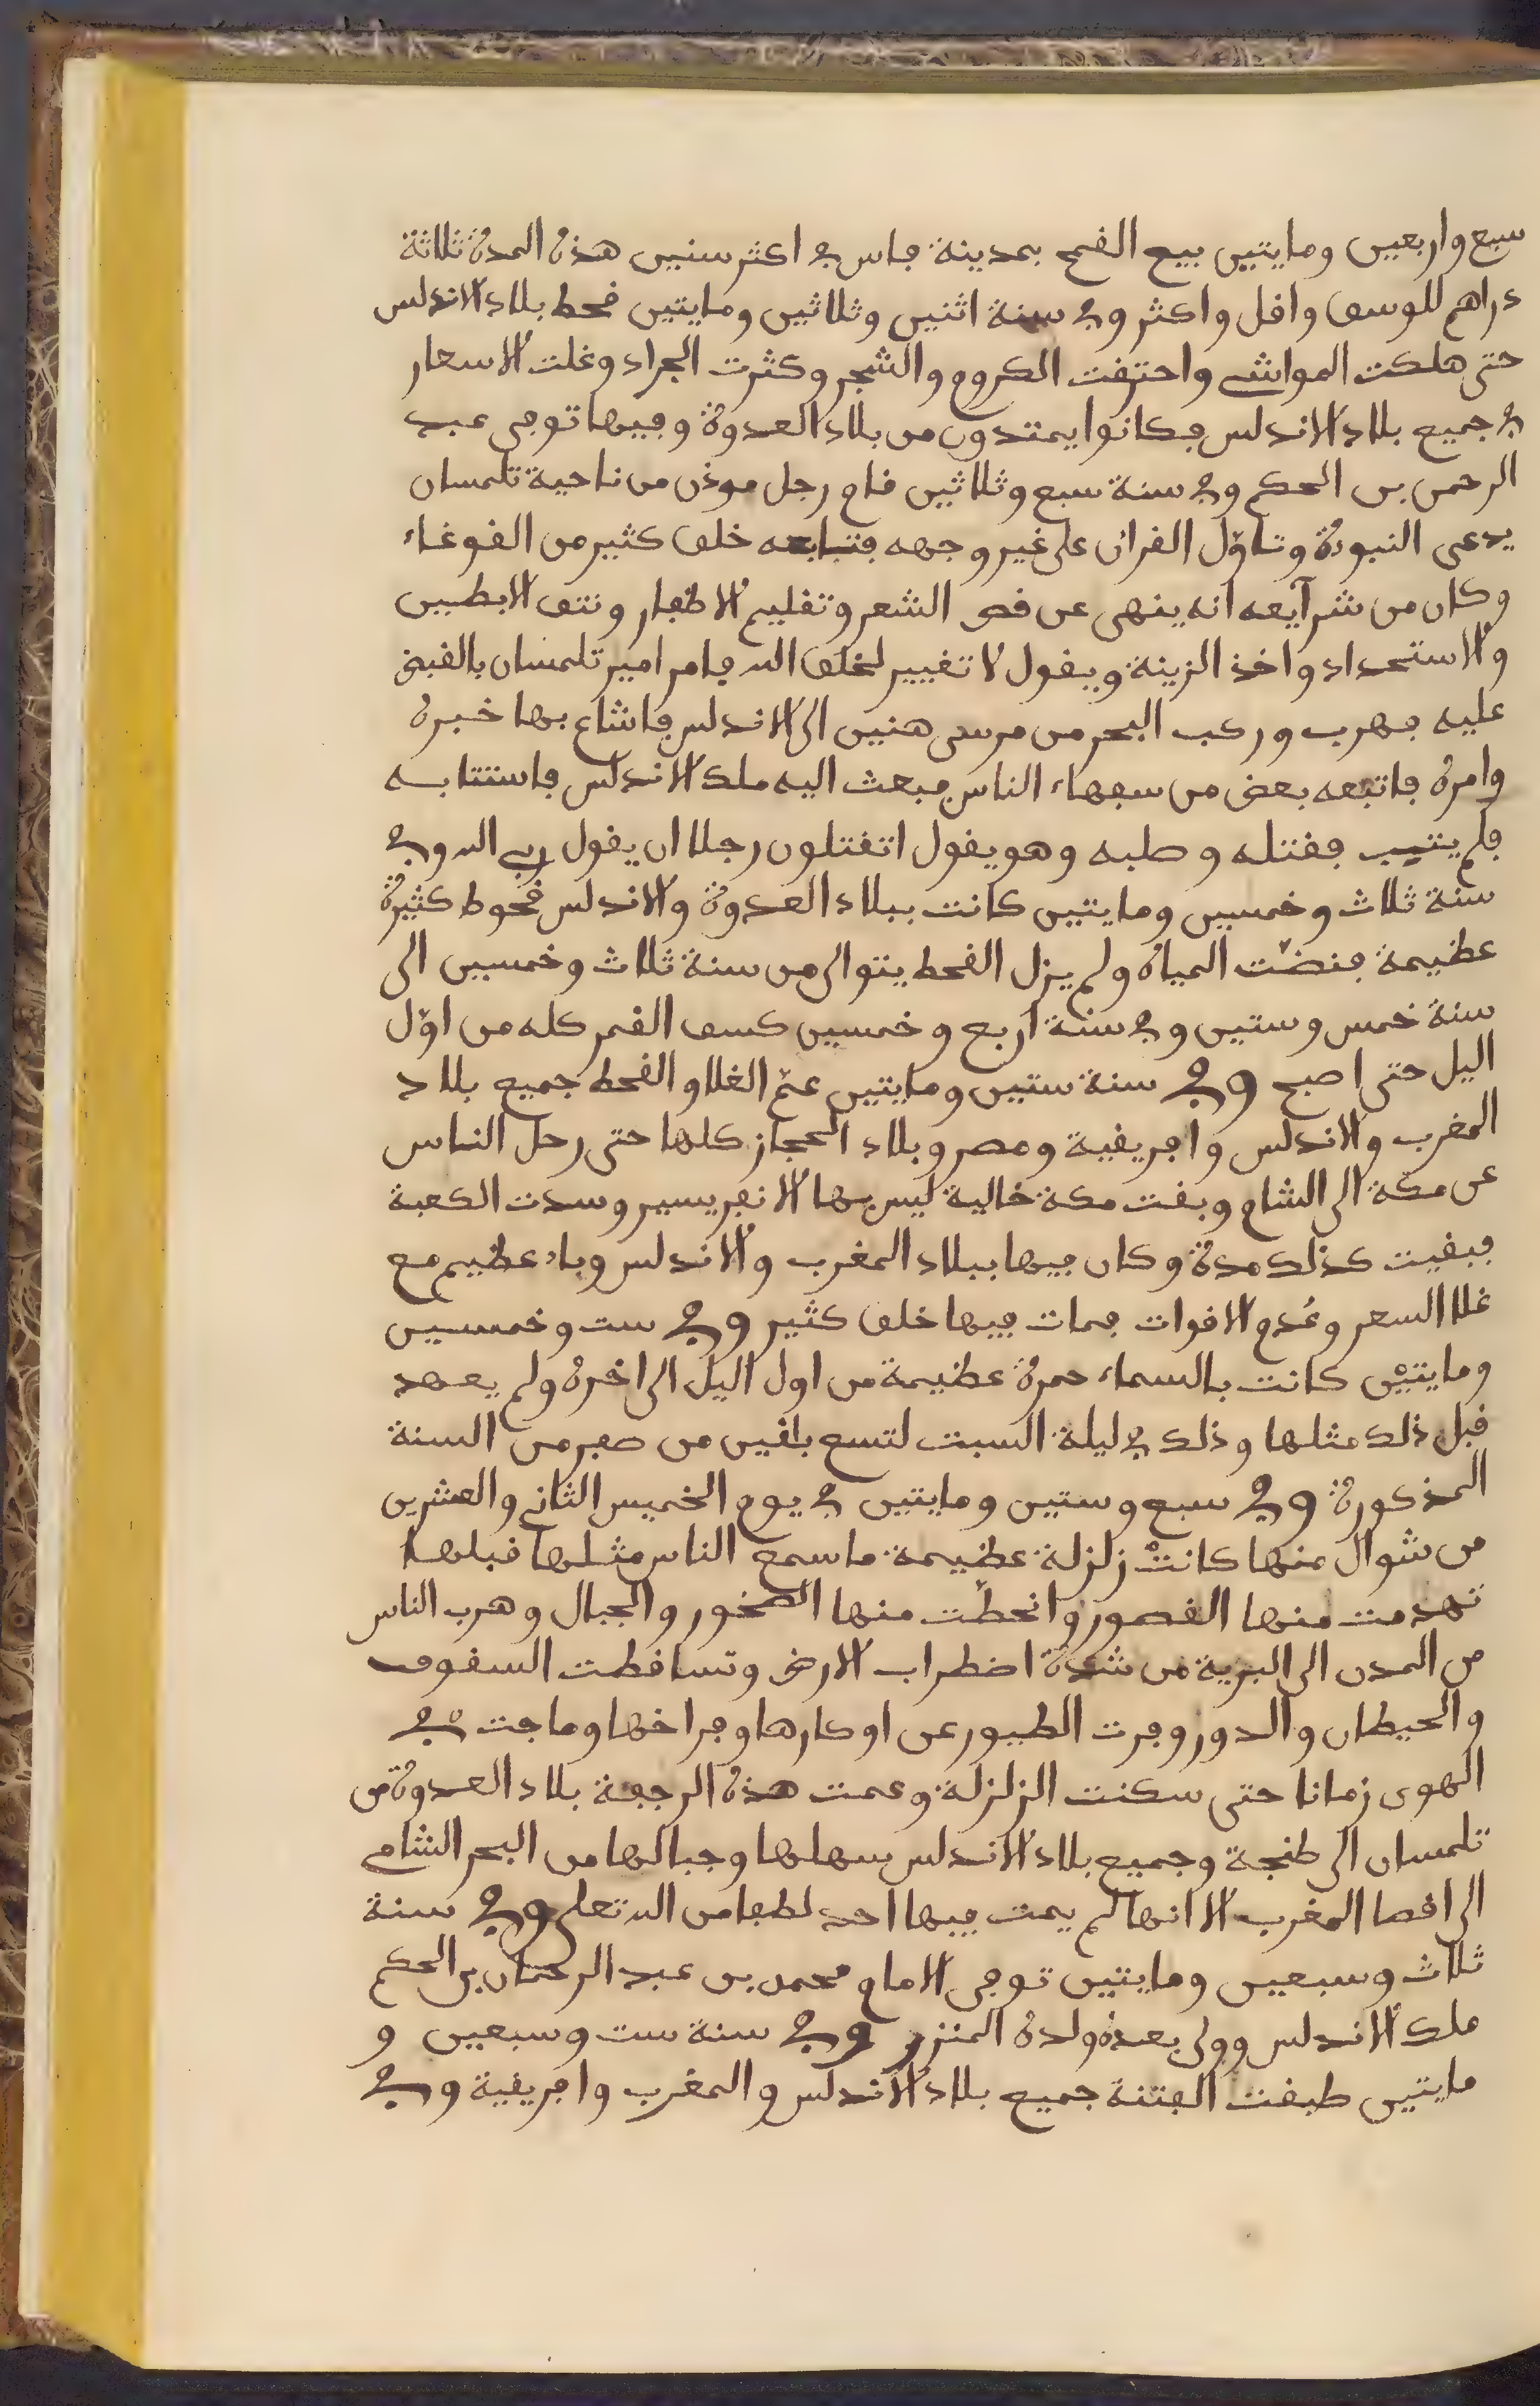 سبع واربعين ومايتين بيع القمح بمدينة فاس في اكثر سنين هذه المدة ثلاثة
دراهم للوسق واقل واكثر وفي سنة اثنين وثلاثين ومايتين قحط بلاد الاندلس
حتى هلكت المواشي واحترقت الكروم والشجر وكثرت الجراد وغلت الاسعار
في جميع بلاد الاندلس فكانوا يمتدون من بلاد العدوة وفيها توفى عبد
الرحمن بن الحكم وفي سنة سبع وثلاثين قام رجل موذن من ناحية تلمسان
يدعى النبوة وتاوّل القران على غير وجهه فتبابعه خلق كثير من الغوغاء
وكان من شرآيعه انه ينهى عن قص الشعر وتقليم الاظفار ونتف الابطيين
والاستحداد واخذ الزينة ويقول لا تغيير لخلق الله فامر امير تلمسان بالقبض
عليه فهرب وركب البحر من مرسى هنين الى الاندلس فاشاع بها خبره
وامره فاتبعه بعض من سفهاء الناس فبعث اليه ملك الاندلس فاستتابه
فلم يتيب فقتله وصلبه وهو يقول اتقتلون رجلا ان يقول ربي الله وفي
سنة ثلاث وخمسين ومايتين كانت ببلاد العدوة والاندلس قحوط كثيرة
عظيمة فنضّت المياه ولم يزل القحط يتوالى من سنة ثلاث وخمسين الى
سنة خمس وستين وفي سنة اربع وخمسين كسف القمر كله من اوّل
اليل حتى اصبح وفي سنة ستين ومايتين عمّ الغلا والقحط جميع بلاد
المغرب والاندلس وافريقية ومصر وبلاد الحجاز كلها حتى رحل الناس
عن مكة الى الشام وبقت مكة خالية ليس بها الا نفر يسير وسدت الكعبة
فبقيت كذلك مدة وكان فيها ببلاد المغرب والاندلس وباء عظيم مع
غلا السعر وعُدم الاقوات فمات فيها خلق كثير وفي ست وخمسين
ومايتين كانت بالسماء حمرة عظيمة من اول اليل الى اخره ولم يعهد
قبل ذلك مثلها وذلك في ليلة السبت لتسع باقين من صفر من السنة
المذكورة وفي سبع وستين ومايتين في يوم الخميس الثاني والعشرين
من شوال منها كانتْ زلزلة عظيمة ما سمع الناس مثلها قبلها
تهدمت منها القصور وانحطّت منها الصخور والجبال وهرب الناس
من المدن الى البرية من شدة اضطراب الارض وتساقطت السقوف
والحيطان والدور وفرت الطيور عن اوكارها وفراخها وماجت في
الهوى زمانا حتى سكنت الزلزلة وعمت هذه الرجفة بلاد العدوة من
تلمسان الى طنجة وجميع بلاد الاندلس سهلها وجبالها من البحر الشامي
الى اقصا المغرب الا انها لم يمت فيها احد لطفا من الله تعلى وفي سنة
ثلاث وسبعين ومايتين توفى الامام محمد بن عبد الرحمان بن الحكم
ملك الاندلس وولى بعده ولده المنزر وفي سنة ست وسبعين و
مايتين طبقت الفتنة جميع بلاد الاندلس والمغرب وافريقية وفي